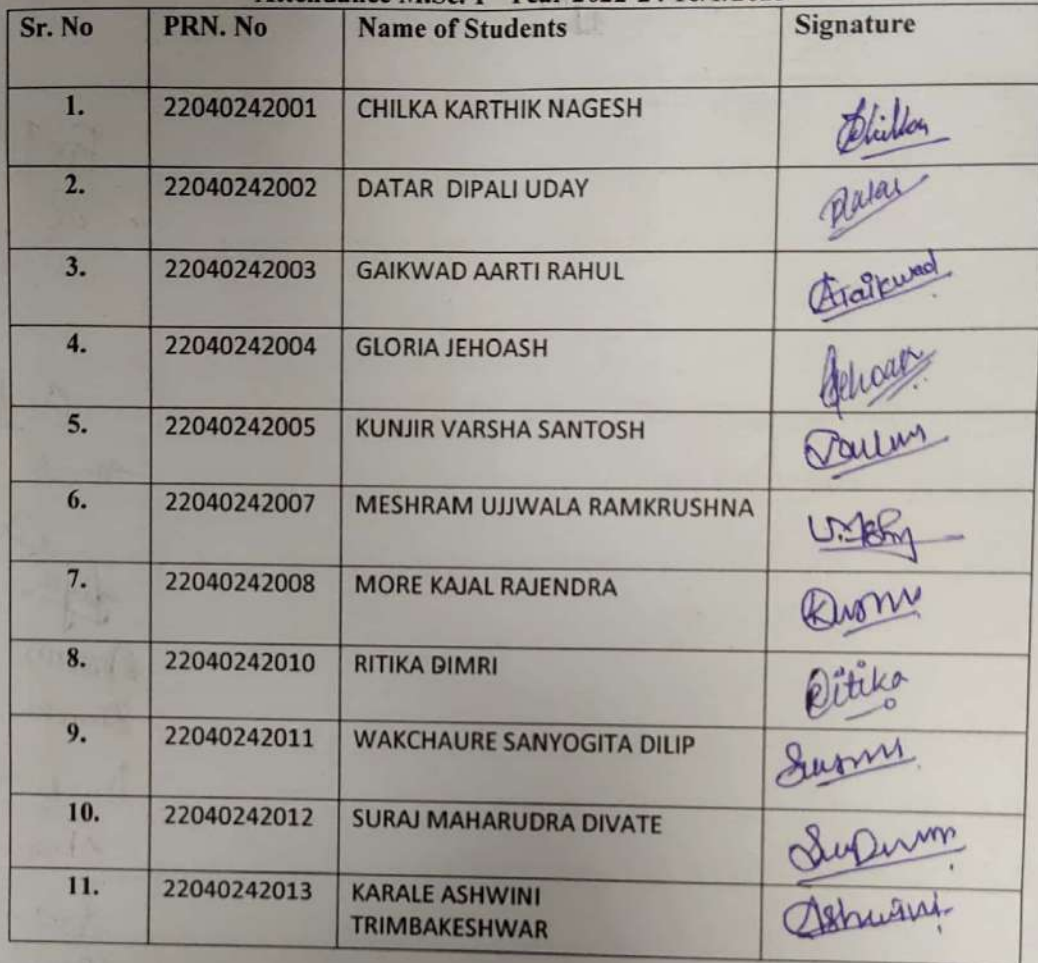 Sr. No PRN. No Name of Students Signature
1. 22040242001 CHILKA KARTHIK NAGESH Chilka
2. 22040242002 DATAR DIPALI UDAY Datar
3. 22040242003 GAIKWAD AARTI RAHUL AGaikwad
4. 22040242004 GLORIA JEHOASH Jehoash
5. 22040242005 KUNJIR VARSHA SANTOSH
6. 22040242007 MESHRAM UJJWALA RAMKRUSHNA
7. 22040242008 MORE KAJAL RAJENDRA
8. 22040242010 RITIKA DIMRI Ritika
9. 22040242011 WAKCHAURE SANYOGITA DILIP
10. 22040242012 SURAJ MAHARUDRA DIVATE
11. 22040242013 KARALE ASHWINI Ashwini
TRIMBAKESHWAR